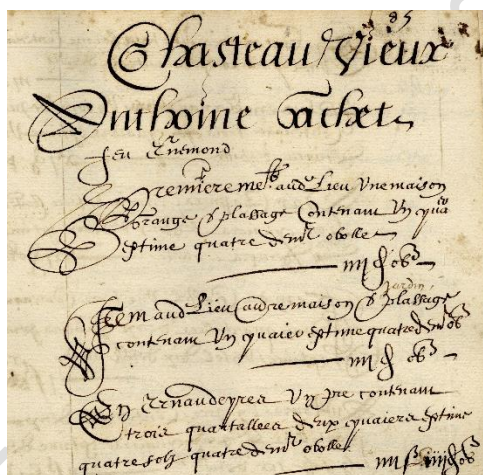 85
Chasteau Vieux
Anthoine Vachet
feu Arnemond
Premiereme^t aud Lieu Une maison
Grange & plassage Contenant Un qua^er
Estime quatre den^rs obolle
iiij d ob
Jardin
Item aud Lieu audre maison & plassage
contenant Un quaier Estime quatre den^rs ob
iiij d ob
En Arnaudeyres Un pre contenant
trois quartallees deux quaiers Estime
quatre solz quatre den^rs obolle
iiij s iiij d ob